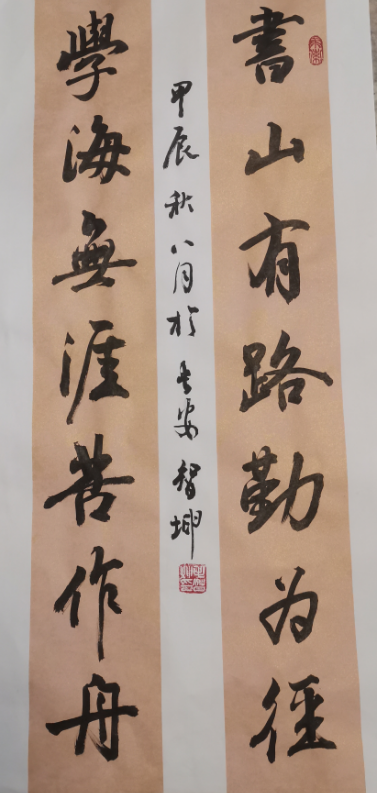 書山有路勤为徑
學海無涯苦作舟
甲辰秋八月於長安智坤